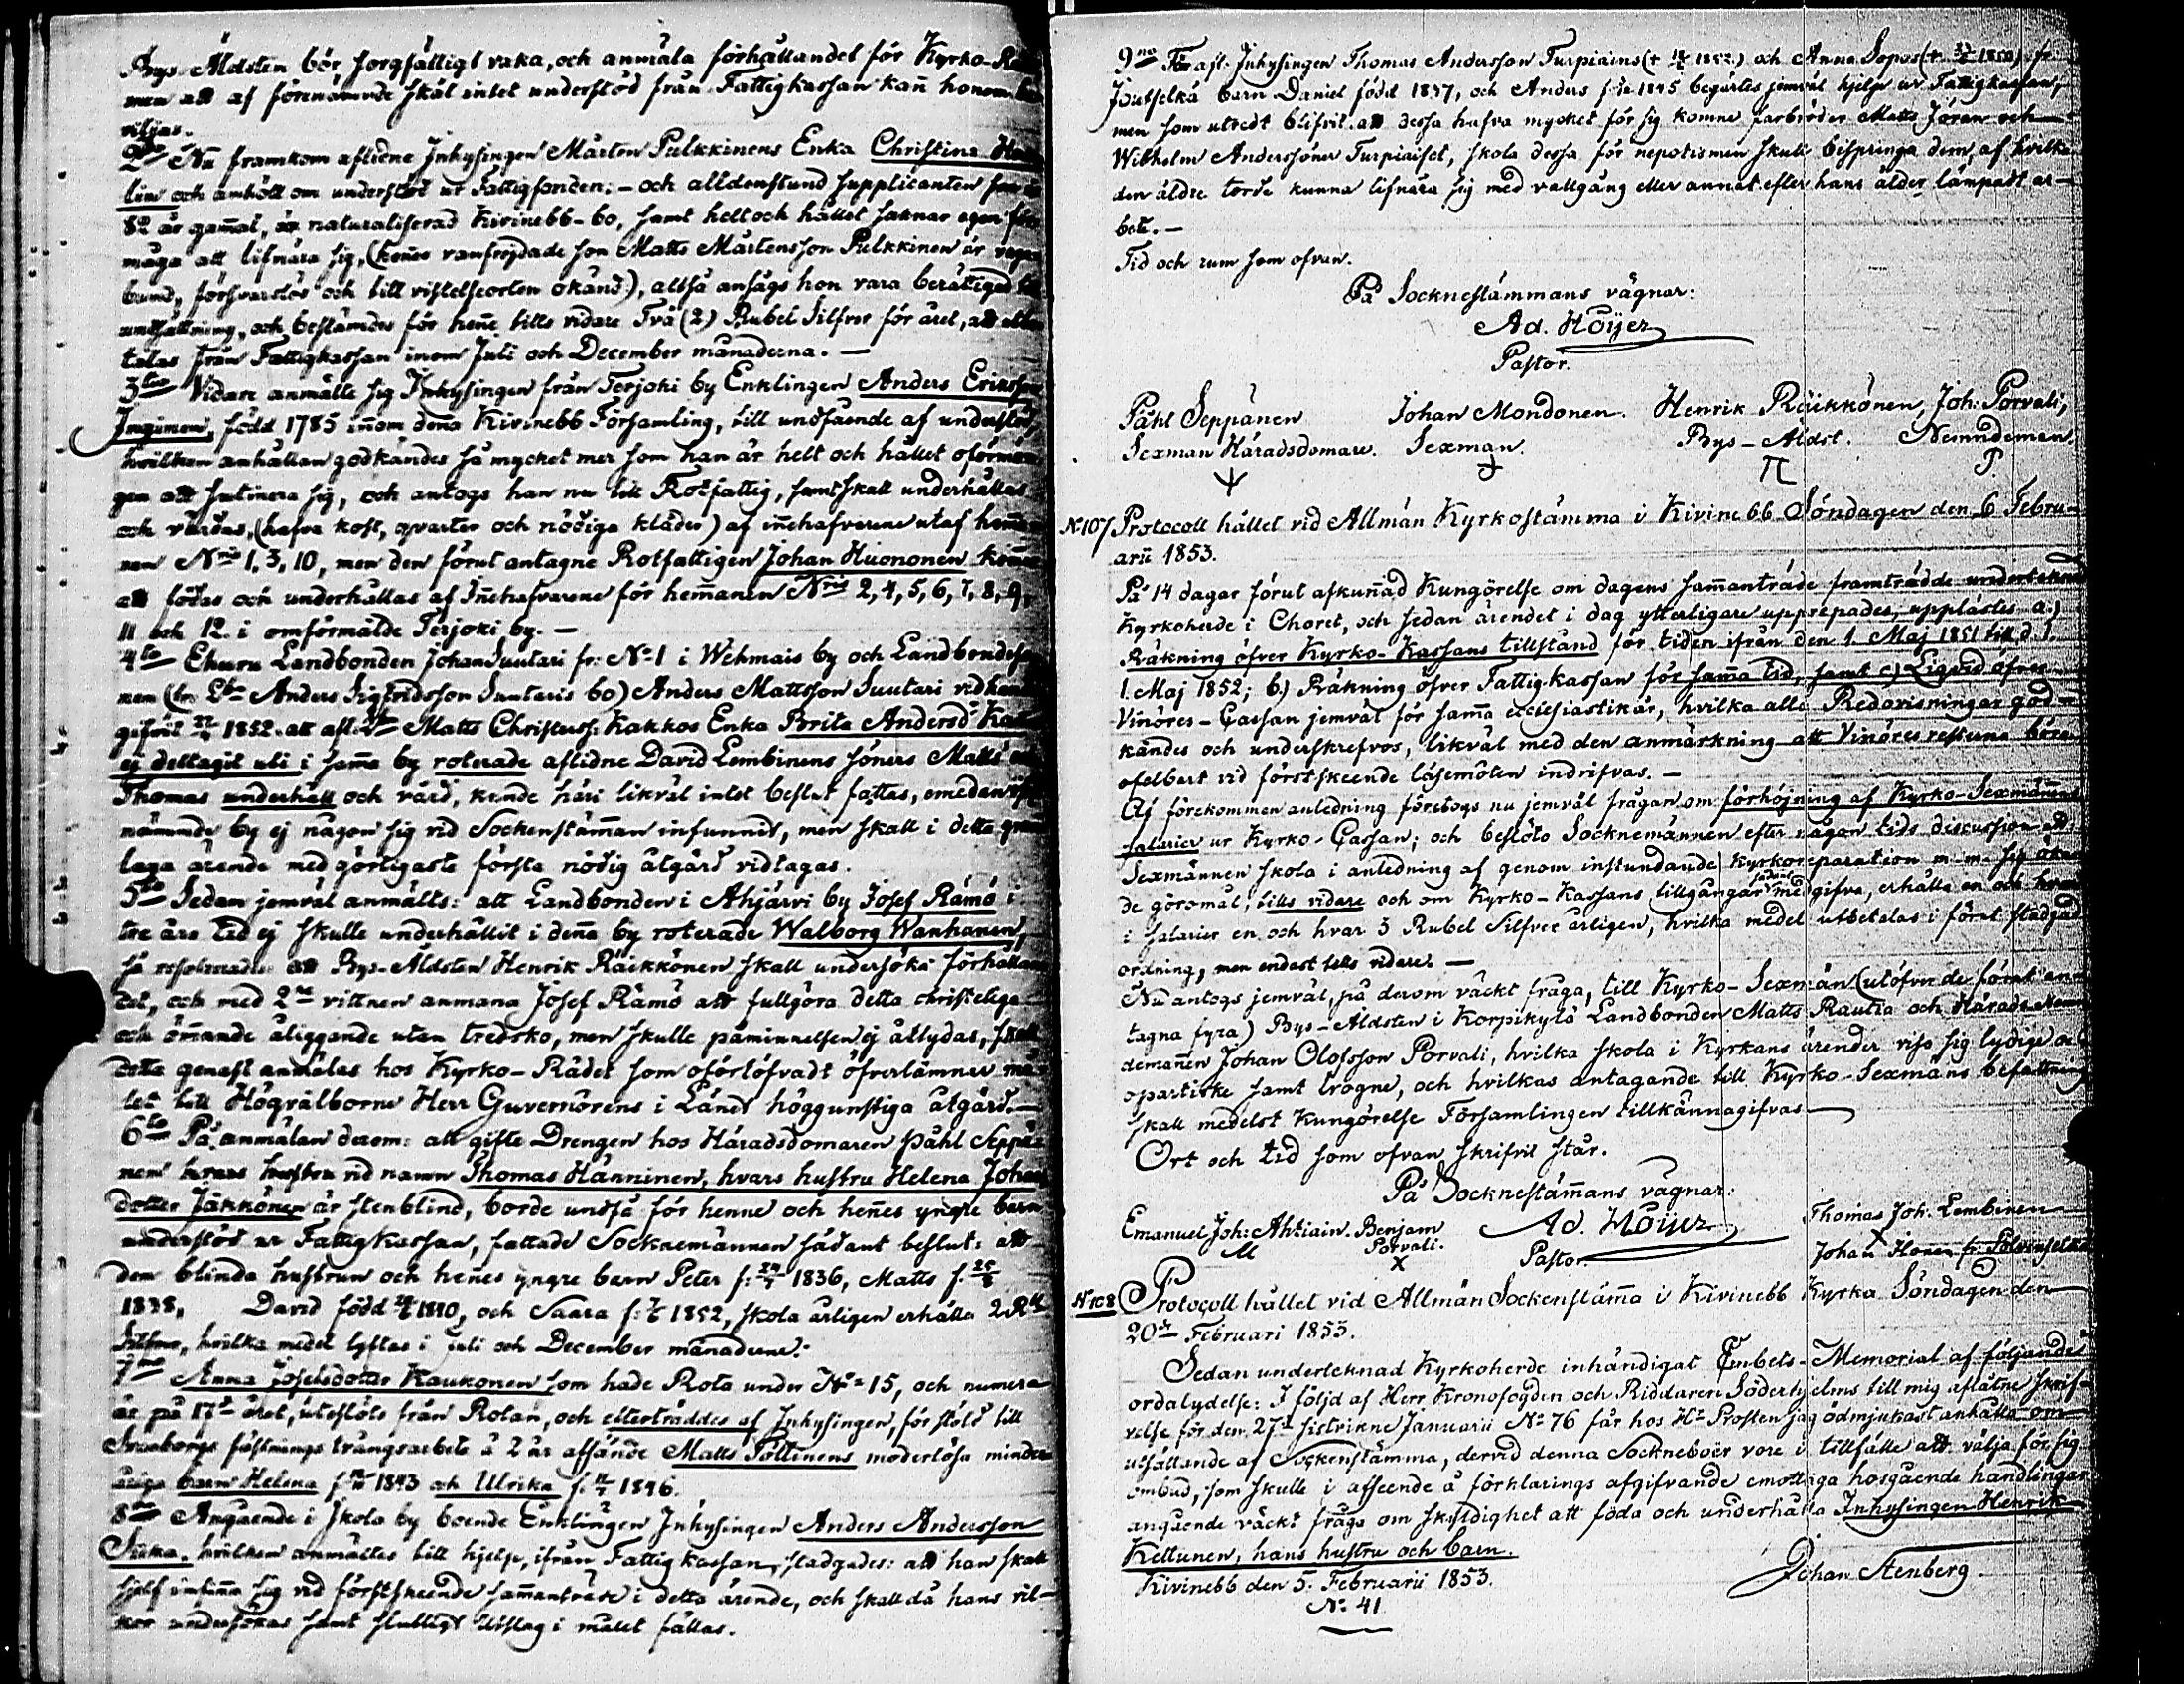 Bys-Äldsten bör sorgfälligt vaka, och anmäla förhållandet för Kyrko-
men att af förenämnde skäl intet understöd från Fattigkassan kan̄ honom
viljas.
2do Nu framkom aflidne Inhysingen Mårten Pulkkinens Enka Christina
och anhöll om understöd ur Fattigfonden; - och alldenstund supplicanten
82 år gam̄al, är naturaliserad Kivinebb-bo, samt helt och hållet saknar egen för-
måga att lifnära sig, (hen̄es vanfrejdade son Matts Mårtensson Pulkkinen är vaga-
bund, försvarslös och till vistelseorten okänd), altså ansågs hon vara berättigad till
undsättning, och bestämdes för hen̄e tills vidare Två (2) Rubel Silfver för året, att utbe-
talas från Fattigkassan inom Juli och December månaderna. —
3tio Vidare anmälte sig Inhysingen från Terjoki by Enklingen Anders Eriksson
Inginen, född 1785 in̄om den̄a Kivinebb Församling, till undfående af understöd,
hvilken anhållan godkändes så mycket mer som han är helt och hållet oförmö-
gen att sutinera sig, och antogs han nu till Rotfattig, samt skall underhållas
och vårdas, (hafva kost, qvarter och nödiga kläder) af in̄ehafverene utaf hem̄a-
nen Nris 1. 3, 10, men den förut antagne Rotfattigen Johan Huononen kom̄er
att födas och underhållas af In̄ehafvarene för hem̄anen Nris 2, 4, 5, 6, 7, 8, 9,
11 och 12. i omförmälde Terjoki by. —
4to Ehuru Landbonden Johan Suutari fr: No 1 i Wehmais by och Landbondeso-
nen (fr. Lbn Anders Sigfridsson Suutaris bo) Anders Mattsson Suutari vidhan
gifvit 1852. att afl. Matts Christerss. Kakkos Enka Brita Andersd:
ej deltagit uti i sam̄a by roterade aflidne David Lembinens söners Matts och
Thomas underhåll och vård, kunde häri likväl intet beslut fattas, emedan
nämnde by ej någon sig vid Sockenstäm̄an infunnit, men skall i detta
laga ärende med görligaste första nödig åtgärd vidtagas.
5to Sedan jemväl anmälts: att Landbonden i Ahjärvi by Josef Rämö i
tre års tid ej skulle underhållit i den̄a by roterade Walborg Wanhanen,
så resolverades att Bys-Äldsten Henrik Räikkönen skall undersöka förhållan-
det, och med 2ne vittnen anmana Josef Rämö att fullgöra detta christeliga
och öm̄ande åliggande utan tredsko, men skulle påminnelsen ej åtlydas, skall
detta genast anmälas hos Kyrko-Rådet som oförtöfvadt öfverlämnar må-
let till Högvälborne Herr Guvernörens i Länet höggunstiga åtgärd. —
6to På anmälan derom: att gifte Drengen hos Häradsdomaren Påhl Seppä-
nen hvars hustru vid namn Thomas Hänninen, hvars hustru Helena Johans-
dotter Jäkkönen är stenblind, borde undfå för henne och hen̄es yngre barn
understöd ur Fattigkassan, fattade Socknemännen sådant beslut: att
den blinda hustrun och hen̄es yngre barn Peter f: 1836, Matts f. 25/8
1838, David född 1840, och Saara f: 1852, skola årligen erhålla 2 Rbl
Silfver, hvilka medel lyftas i Juli och December månaderne. -
7mo Anna Josefsdotter Kaukonen som hade Rota under No 15, och numera
är på 17de året, uteslöts från Rotan, och efterträddes af Inhysingen, för stöld till
Sveaborgs fästnings trångsarbete å 2 år afsände Matts Pöllinens moderlösa minder-
åriga barn Helena f. 1843 och Ulrika f. 1846.
8vo Angående i Skola by boende Enklingen Inhysingen Anders Andersson
Suka, hvilken anmältes till hjelp, ifrån Fattigkassan, stadgades: att han skall
sjelf infin̄a sig vid förstskeende sam̄anträde i detta ärende, och skall då hans vil-
kor undersökas samt slutligt utslag i målet fällas.
9no För afl. Inhysingen Thomas Andersson Turpiains (+ 1852) och Anna Sopos (+ 1850) fr
Joutselkä barn Daniel född 1837, och Anders f. 1845 begärtes jemväl hjelp ur Fattigkassan,
men som utredt blifvit att dessa hafva mycket för sig komne farbröder Matts Jöran och
Wilhelm Anderssöner Turpiaiset, skola dessa för nepotismen skull bispringa dem, af hvilka
den äldre torde kunna lifnära sig med vallgång eller annat efter hans ålder lämpadt ar-
bete. —
Tid och rum som ofvan.
På Socknestämmans vägnar:
Ad. Höijer
Pastor.
Påhl Seppänen Johan Mondonen. Henrik Räikkönen, Joh: Porvali,
Sexman Häradsdomare. Sexman. Bys-Äldst. Nemndeman.
N:107 Protocoll hållet vid Allmän Kyrkostämma i Kivinebb Söndagen den 6 Febru-
arii 1853.
På 14 dagar förut afkun̄ad Kungörelse om dagens sam̄anträde framträdde undertecknad
Kyrkoherde i Choret, och sedan ärendet i dag ytterligare upprepades, upplästes a.)
Räkning öfver Kyrko-Kassans tillstånd för tiden ifrån den 1. Maj 1851 till d. 1.
1. Maj 1852; b.) Räkning öfver Fattig-kassan för sam̄a tid, samt c.) Liqvid öfver
Vinöres-Cassan jemväl för sam̄a ecclesiastikår, hvilka alla Redovisningar god-
kändes och underskrefvos, likväl med den anmärkning att Vinöres resterna böra
ofelbart vid förstskeende läsemöten indrifvas. —
Af förekommen anledning företogs nu jemväl frågan om förhöjning af Kyrko-Sexmän̄nens
salarier ur Kyrko-Cassan; och beslöto Socknemännen efter någon tids discussion att
Sexmännen skola i anledning af genom instundande Kyrkoreparation m.m. sig ökan-
de göromål, tills vidare och om Kyrko-Kassans tillgångar sådant medgifva, erhålla en och hvar
i salarier en och hvar 3 Rubel Silfver årligen, hvilka medel utbetalas i förut stadgad
ordning, men endast tills vidare. —
Nu antogs jemväl, på derom väckt fråga, till Kyrko-Sexmän (utöfver de förut an-
tagna fyra) Bys-Äldsten i Korpikylä Landbonden Matts Rautia och Härads Nemn-
deman̄en Johan Olofsson Porvali, hvilka skola i Kyrkans ärender visa sig lydige
opartiske samt trogne, och hvilkas antagande till Kyrko-Sexmäns befattning
skall medelst Kungörelse Församlingen tillkännagifvas —
Ort och tid som ofvan skrifvit står.
På Socknestäm̄ans vägnar:
Emanuel Joh: Ahtiain. Benjam Porvali. Ad. Höijer Thomas Joh. Lembinen
M X Pastor. Johan
N:108 Protocoll hållet vid Allmän Sockenstäm̄a i Kivinebb Kyrka Söndagen den
20de Februari 1853.
Sedan undertecknad Kyrkoherde inhändigat Embets-Memorial af följande
ordalydelse: I följd af Herr Kronofogden och Riddaren Söderhjelms till mig aflåtne skrif-
velse för den 27de sistvikne Januarii No 76 får hos Hr Prosten jag ödmjukast anhålla om
utsättande af Sockenstämma, dervid denna Sockneboër vore i tillfälle att välja för sig
ombud, som skulle i afseende å förklarings afgifvande emottaga hosgående handlingar
angående väckt fråga om skyldighet att föda och underhålla Inhysingen Henrik
Kettunen, hans hustru och barn.
Kivinebb den 5. Februarii 1853. Johan Stenberg.
No 41